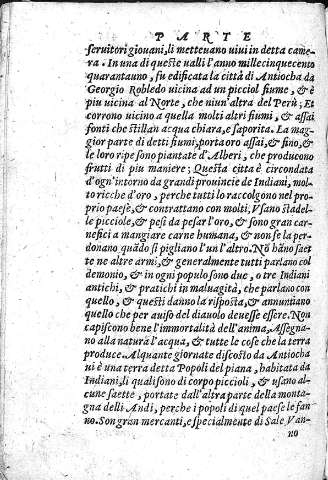 PARTE
seruitori giouani, li metteuano uiui in detta came
ra. In una di queste ualli l'anno millecinquecento
quarantauno, fu edificata la città di Antiocha da
Georgio Robledo uicina ad un picciol fiume, & è
piu uicina al Norte, che niun'altra del Perù; Et
corrono uicino a quella molti altri fiumi, & assai
fonti che stillan acqua chiara, e saporita. La mag
gior parte di detti fiumi, porta oro assai, & fino, &
le loro ripe sono piantate d'Alberi, che producono
frutti di piu maniere; Questa città è circondata
d'ogn'intorno da grandi prouincie de Indiani, mol
to ricche d'oro, perche tutti lo raccolgono nel pro
prio paese, & contrattano con molti, Vsano stadel
le picciole, & pesi da pesar l'oro, & sono gran car
nefici a mangiare carne humana, & non se la per
donano quādo si pigliano l'un l'altro. Nō hāno saet
te ne altre armi, & generalmente tutti parlano col
demonio, & in ogni populo sono due, o tre Indiani
antichi, & pratichi in maluagità, che parlano con
quello, & questi danno la risposta, & annuntiano
quello che per auiso del diauolo deuesse essere. Non
capiscono bene l'immortalità dell'anima, Assegna
no alla naturà l'acqua, & tutte le cose che la terra
produce. Alquante giornate discosto da Antiocha
ui è una terra detta Popoli del piana, habitata da
Indiani, li quali sono di corpo piccioli, & usano al
cune saette, portate dall'altra parte della monta
gna delli Andi, perche i popoli di quel paese le fan
no. Son gran mercanti, e specialmente di Sale, Van
no